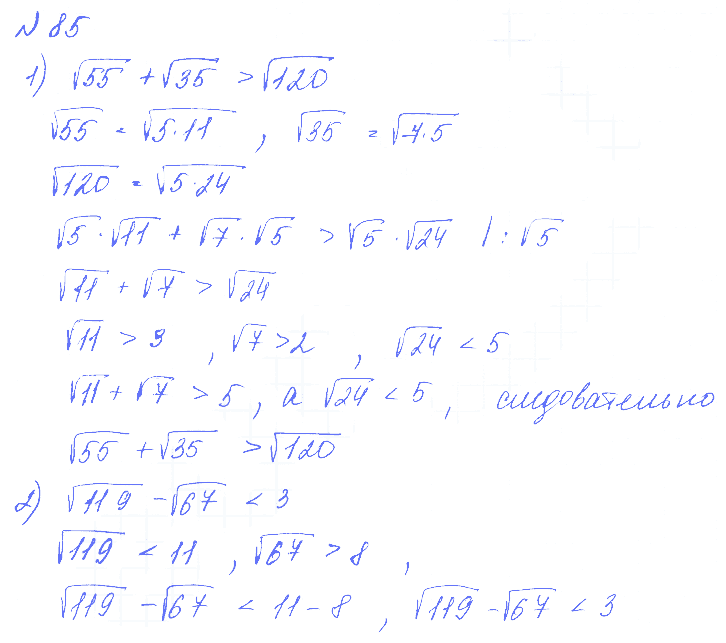 № 85
1) √55 + √35 > √120
√55 = √5·11 , √35 = √7·5
√120 = √5·24
√5 · √11 + √7 · √5 > √5 · √24 | : √5
√11 + √7 > √24
√11 > 3 , √7 > 2 , √24 < 5
√11 + √7 > 5 , а √24 < 5 , следовательно
√55 + √35 > √120
2) √119 - √67 < 3
√119 < 11 , √67 > 8 ,
√119 - √67 < 11 - 8 , √119 - √67 < 3